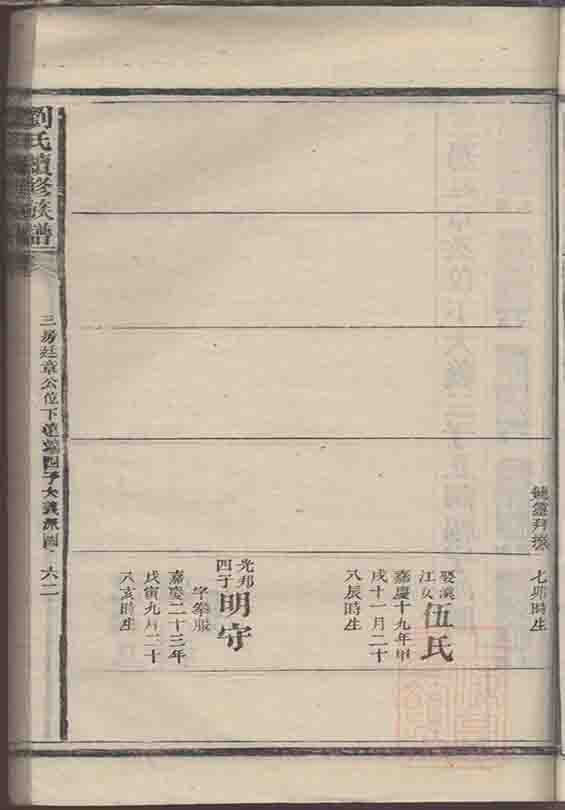 七卯時生
娶漢
江女
伍氏
嘉慶十九年甲
戌十一月二十
八辰時生
光邦
四子
明守
字
嘉慶二十三年
戊寅九月二十
八亥時生
劉氏續修族譜
三房廷章公位下
四子大義派
六二